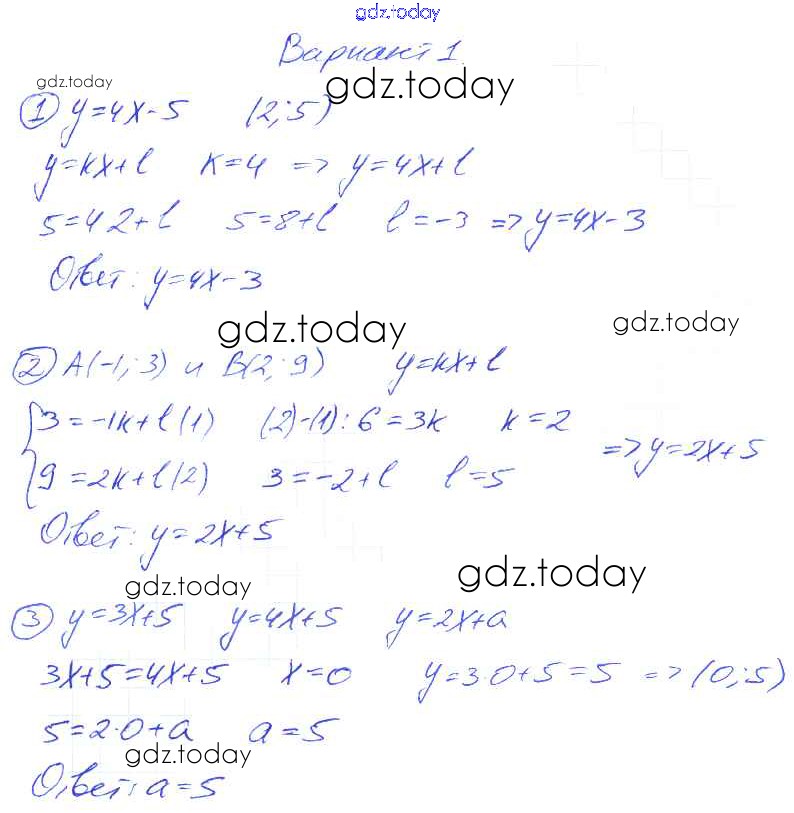 gdz.today
Вариант 1.
gdz.today gdz.today
① y=4x-5 (2;5)
y=kx+l k=4 => y=4x+l
5=4·2+l 5=8+l l=-3 => y=4x-3
Ответ: y=4x-3
gdz.today gdz.today
② A(-1;3) и B(2;9) y=kx+l
{3=-1k+l (1) (2)-(1): 6=3k k=2
=> y=2x+5
9=2k+l (2) 3=-2+l l=5
Ответ: y=2x+5
gdz.today gdz.today
③ y=3x+5 y=4x+5 y=2x+a
3x+5=4x+5 x=0 y=3·0+5=5 => (0;5)
5=2·0+a a=5
gdz.today
Ответ: a=5